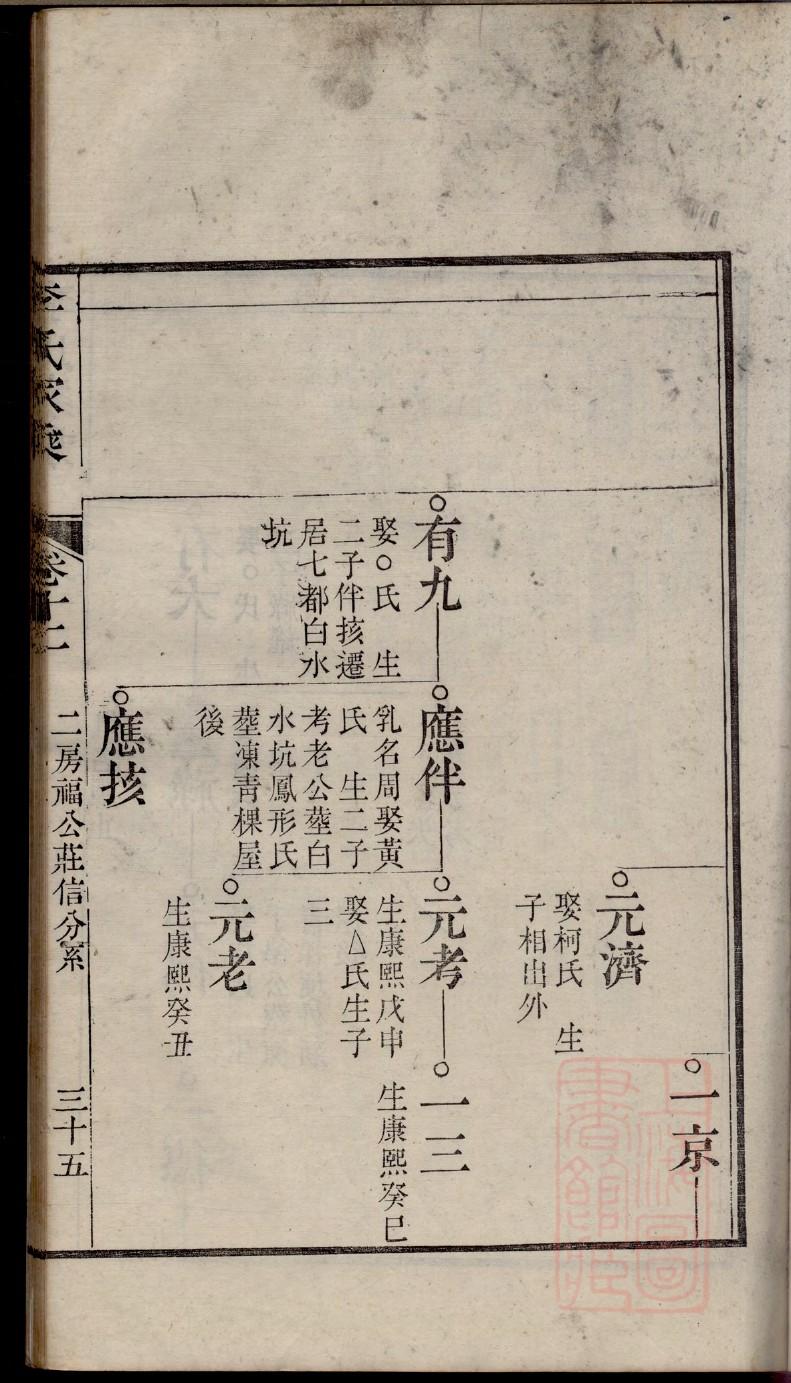 一京
元濟
娶柯氏　生
子相出外
有九
娶○氏　生
二子伴孩遷
居七都白水
坑
應伴
乳名周娶黃
氏　生二子
考老公塟白
水坑鳳形氏
塟凍青棵屋
後
元考
生康熙戊申
娶△氏生子
三
一三
生康熙癸巳
元老
生康熙癸丑
應孩
李氏家乘
卷十二
二房福公莊信分系
三十五
上海圖
書館藏